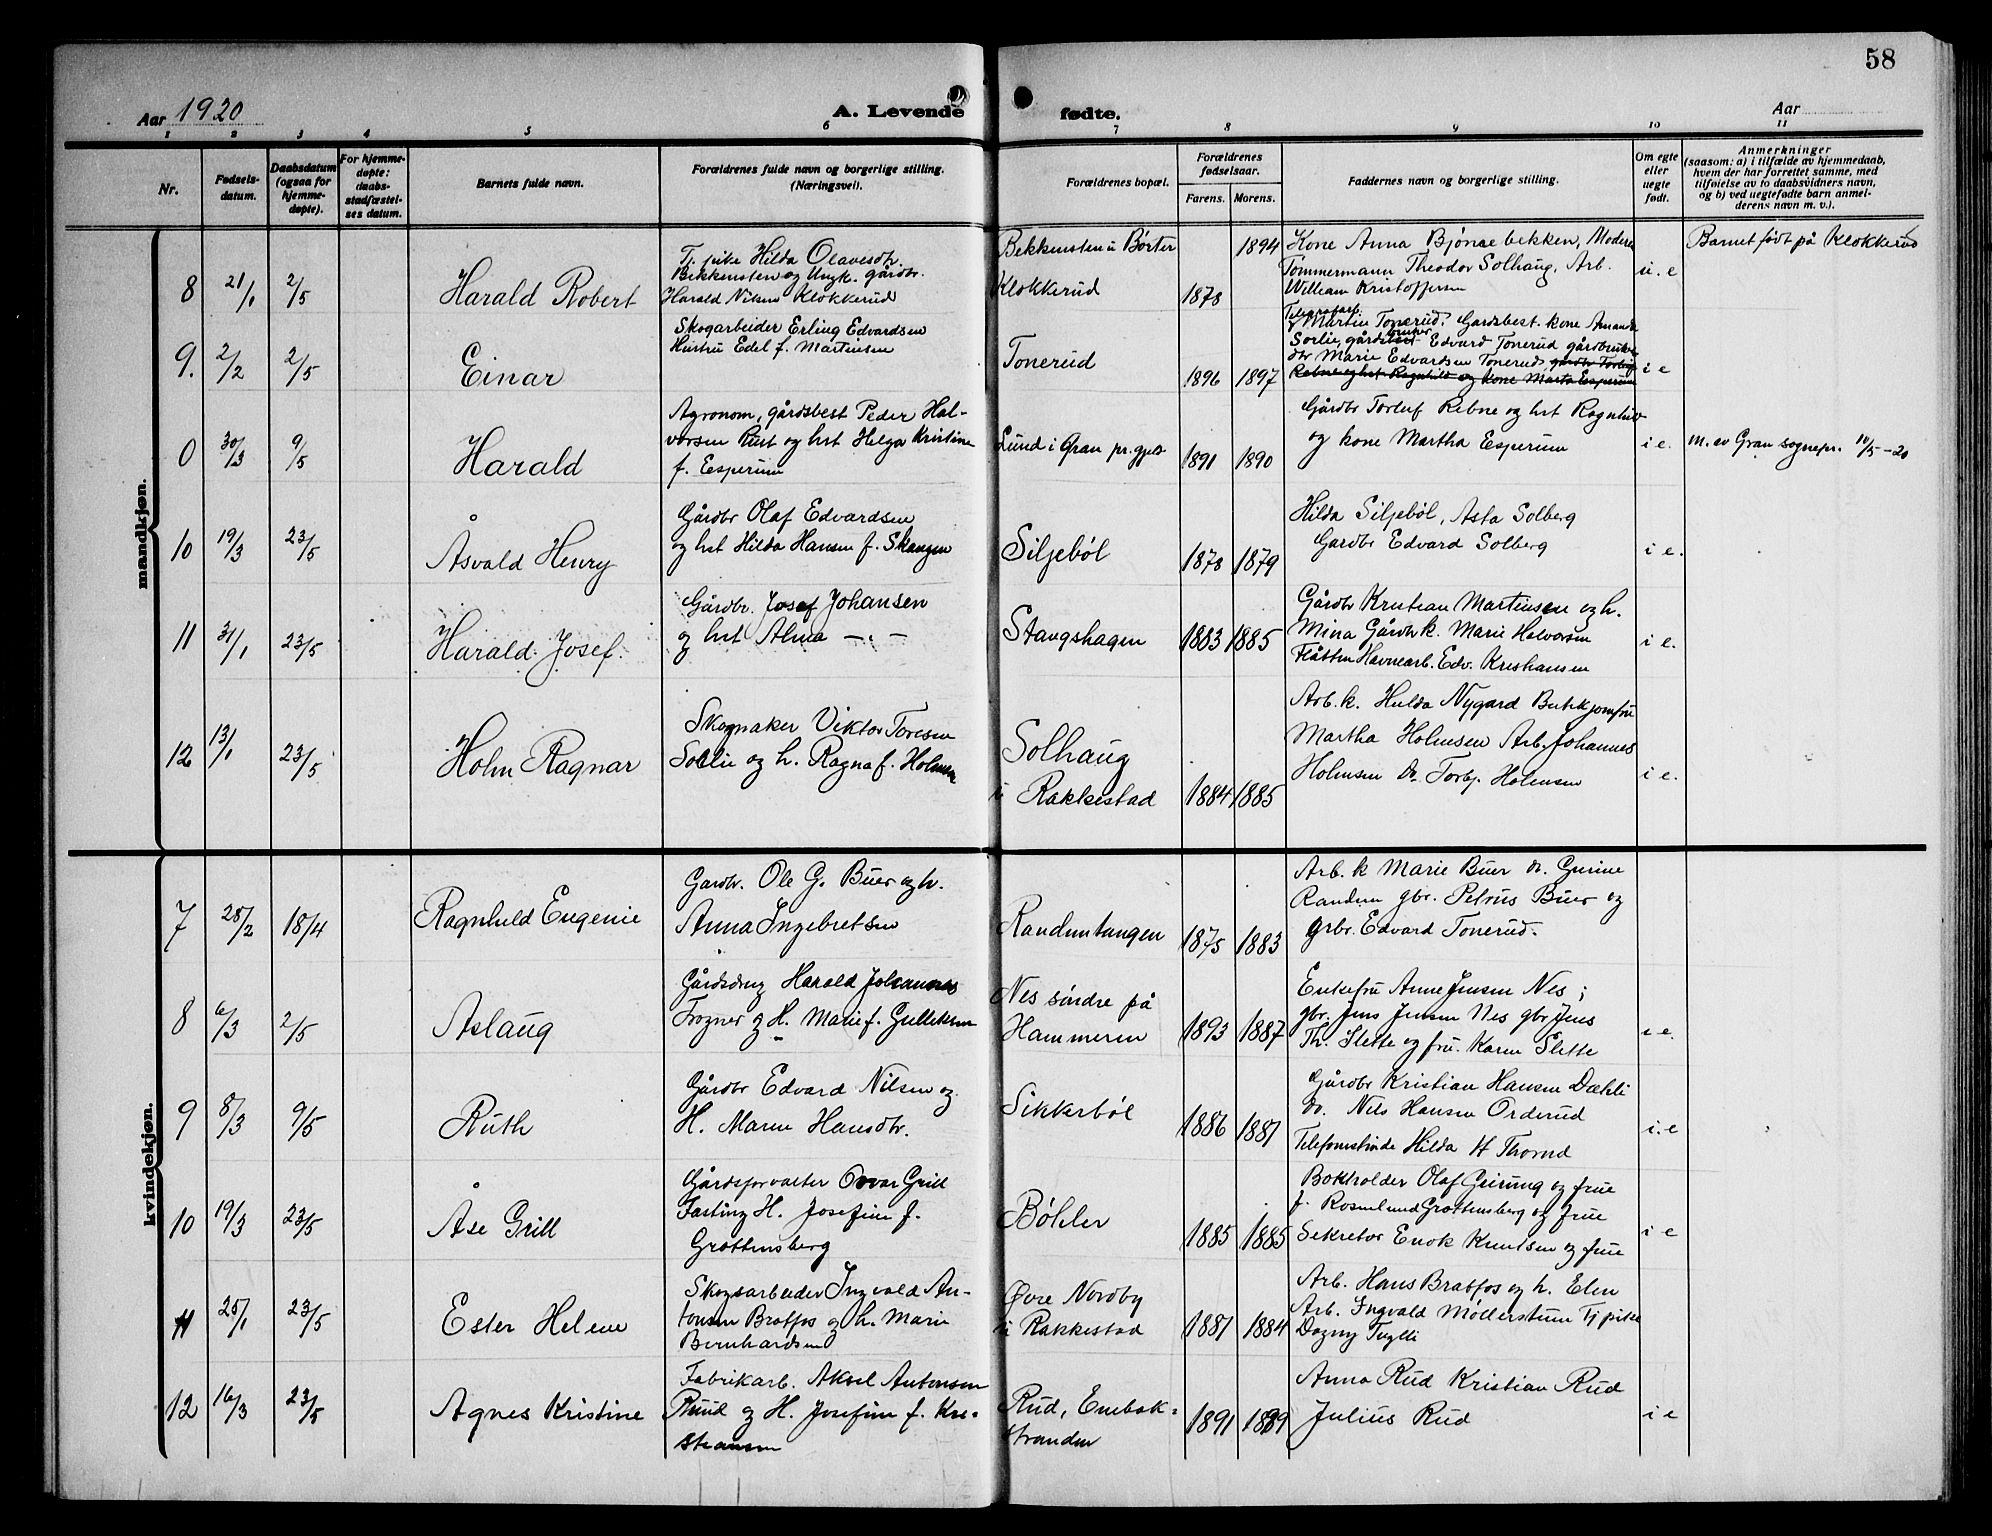 58
Aar 1920
A. Levende
fødte.
Aar
1 2 3 4 5 6 7 8 9 10 11
Nr.
Fødsels-
datum.
Daabsdatum
(ogsaa for
hjemme-
døpte).
For hjemme-
døpte:
daabs-
stadfæstel-
ses datum.
Barnets fulde navn.
Forældrenes fulde navn og borgerlige stilling.
(Næringsvei).
Forældrenes bopæl.
Forældrenes
fødselsaar.
Farens. Morens.
Faddernes navn og borgerlige stilling.
Om egte
eller
uegte
født.
Anmerkninger
(saasom: a) i tilfælde av hjemmedaab,
hvem der har forrettet samme, med
tilføielse av to daabsvidners navn,
og b) ved uegtefødte barn anmel-
derens navn m. v.).
mandkjøn.
8 21/1 2/5 Harald Robert
Tj. pike Hilda Olavesdtr.
Bekkensten og Ungk. gårdbr.
Harald Nilsen Klokkerud
Bekkensten i Børter
Klokkerud
1878 1894
Kone Anna Bjønnebekken, Modera
Tømmermann Theodor Solhaug, Arb.
William Kristoffersen
u. e
Barnet født på Klokkerud
9. 2/2 2/5 Einar
Skogarbeider Erling Edvardsen
Hustru Edel f. Martinsen
Tonerud
1896 1897
Telegrafarb.
Martin Tonerud. Gardsbest. kone Amanda
Sørlie, gårdbruker Edvard Tonerud gårdbruker
dtr Marie Edvardsen Tonerud, gårdbr Torleif
Rebne og hst Ragnhild og kone Marta Esperum
i e
0 30/3 9/5 Harald
Agronom, gårdsbest Peder Hal-
vorsen Rust og hst Helga Kristine
f. Esperum
Lund i Gran pr.gjeld
1891 1890
Gårdbr Torleif Rebne og hst Ragnhild
og kone Martha Esperum
i e.
m. av Gran sognepr. 10/5-20
10 19/3 23/5 Åsvald Henry
Gårdbr Olaf Edvardsen
og hst Hilda Hansen f. Skaugen
Siljebøl
1878 1879
Hilda Siljebøl, Asta Solberg
Gardbr Edvard Solberg
i e.
11 31/1 23/5 Harald Josef.
Gårdbr. Josef Johansen
og hst Alma —"—
Stangshagen
1883 1885
Gårdbr Kristian Martinsen og h.
Mina Gårdbrk. Marie Halvorsen
Flåtten Havnearb. Edv. Kristiansen
i e.
12 13/1 23/5 Holm Ragnar
Skogmaker Viktor Toresen
Solli og h. Ragna f. Holmsen
Solhaug
i Rakkestad
1884 1885
Arb. k. Hulda Nygard Butikjomfru
Martha Holmsen Arb. Johannes
Holmsen Do. Torbj. Holmsen
i e.
kvindekjøn.
7 28/2 18/4 Ragnhild Eugenie
Gardbr. Ole G. Buer og h.
Anna Ingebretsen
Randumtangen
1875 1883
Arb. k Marie Buer do. Gurine
Randem gbr. Petrus Buer og
grbr. Edvard Tonerud.
8 6/3 2/5 Aslaug
Gårdsdreng Harald Johannes
Frogner og H. Marie f. Gulliksen
Nes søndre på
Hammeren
1893 1887
Enkefru Anne Jensen Nes;
gbr. Jens Jensen Nes gbr Jens
Th. Slette og fru. Karen Slette
i e.
9 8/3 9/5 Ruth
Gårdbr Edvard Nilsen og
H. Maren Hansdtr.
Sikkerbøl
1886 1887
Gårdbr Kristian Hansen Dæhli
do. Nils Hansen Orderud
Telefonistinde Hilda H Thorud
i. e
10 19/3 23/5 Åse Grill
Gårdsforvalter Orvar Grill
Fasting H. Josefine f.
Grottensberg
Bøhler
1885 1885
Bokholder Olaf Geirung og frue
f. Rosenlund Grottensberg og frue
Sekretær Enok Knutsen og frue
i e
11 25/1 23/5 Ester Helene
Skogsarbeider Ingvald An-
tonsen Bratfos og h. Marie
Bernhardsen
Øvre Nordby
i Rakkestad
1887 1884
Arb. Hans Bratfos og h. Elen
Arb. Ingvald Møllerstuen Tj pike
Dagny
12 16/3 23/5 Agnes Kristine
Fabrikarb. Aksel Antonsen
Ruud og H. Josefine f. Kri-
stiansen
Rud, Enebak-
stranden
1891 1889
Anna Rud Kristian Rud
Julius Rud
i e